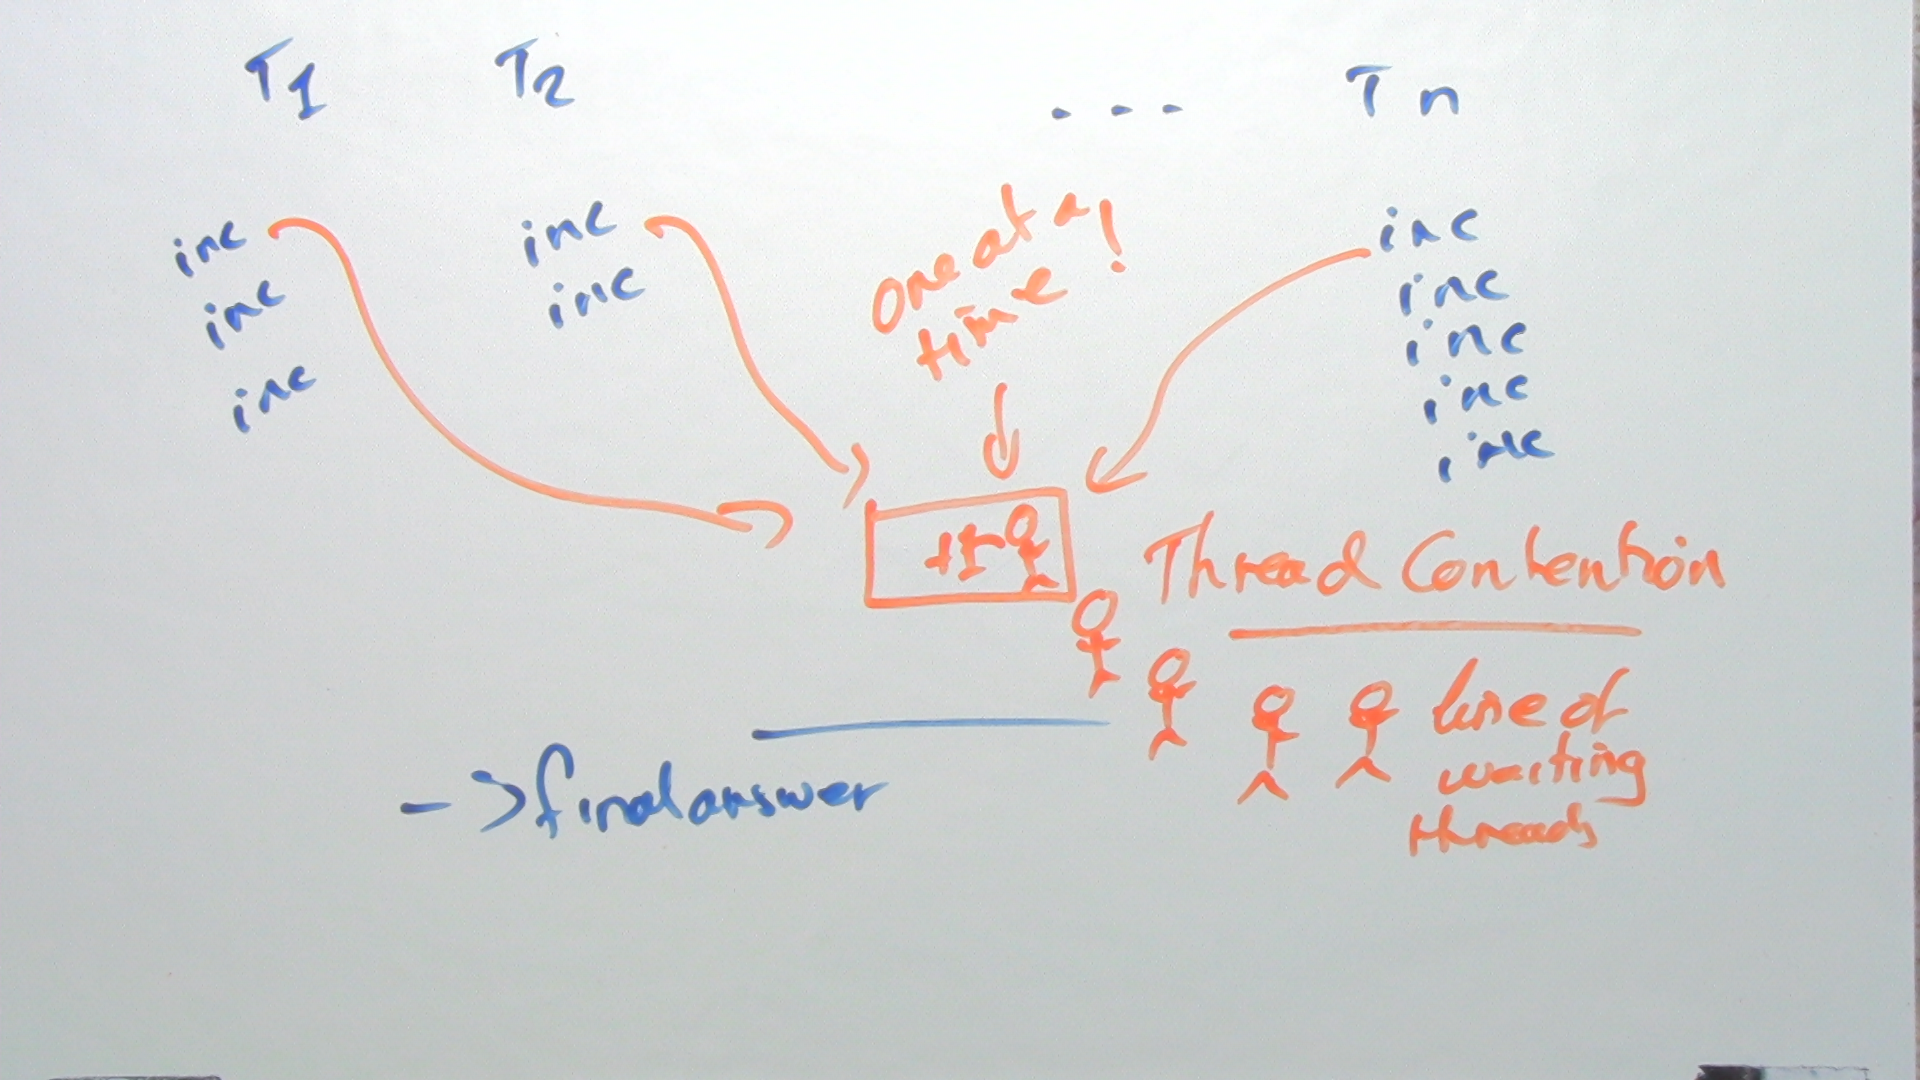 T1 T2 ... Tn
inc inc inc
inc inc inc
inc inc
inc
inc
one at a
time!
+1
Thread Contention
line of
waiting
threads
-> final answer